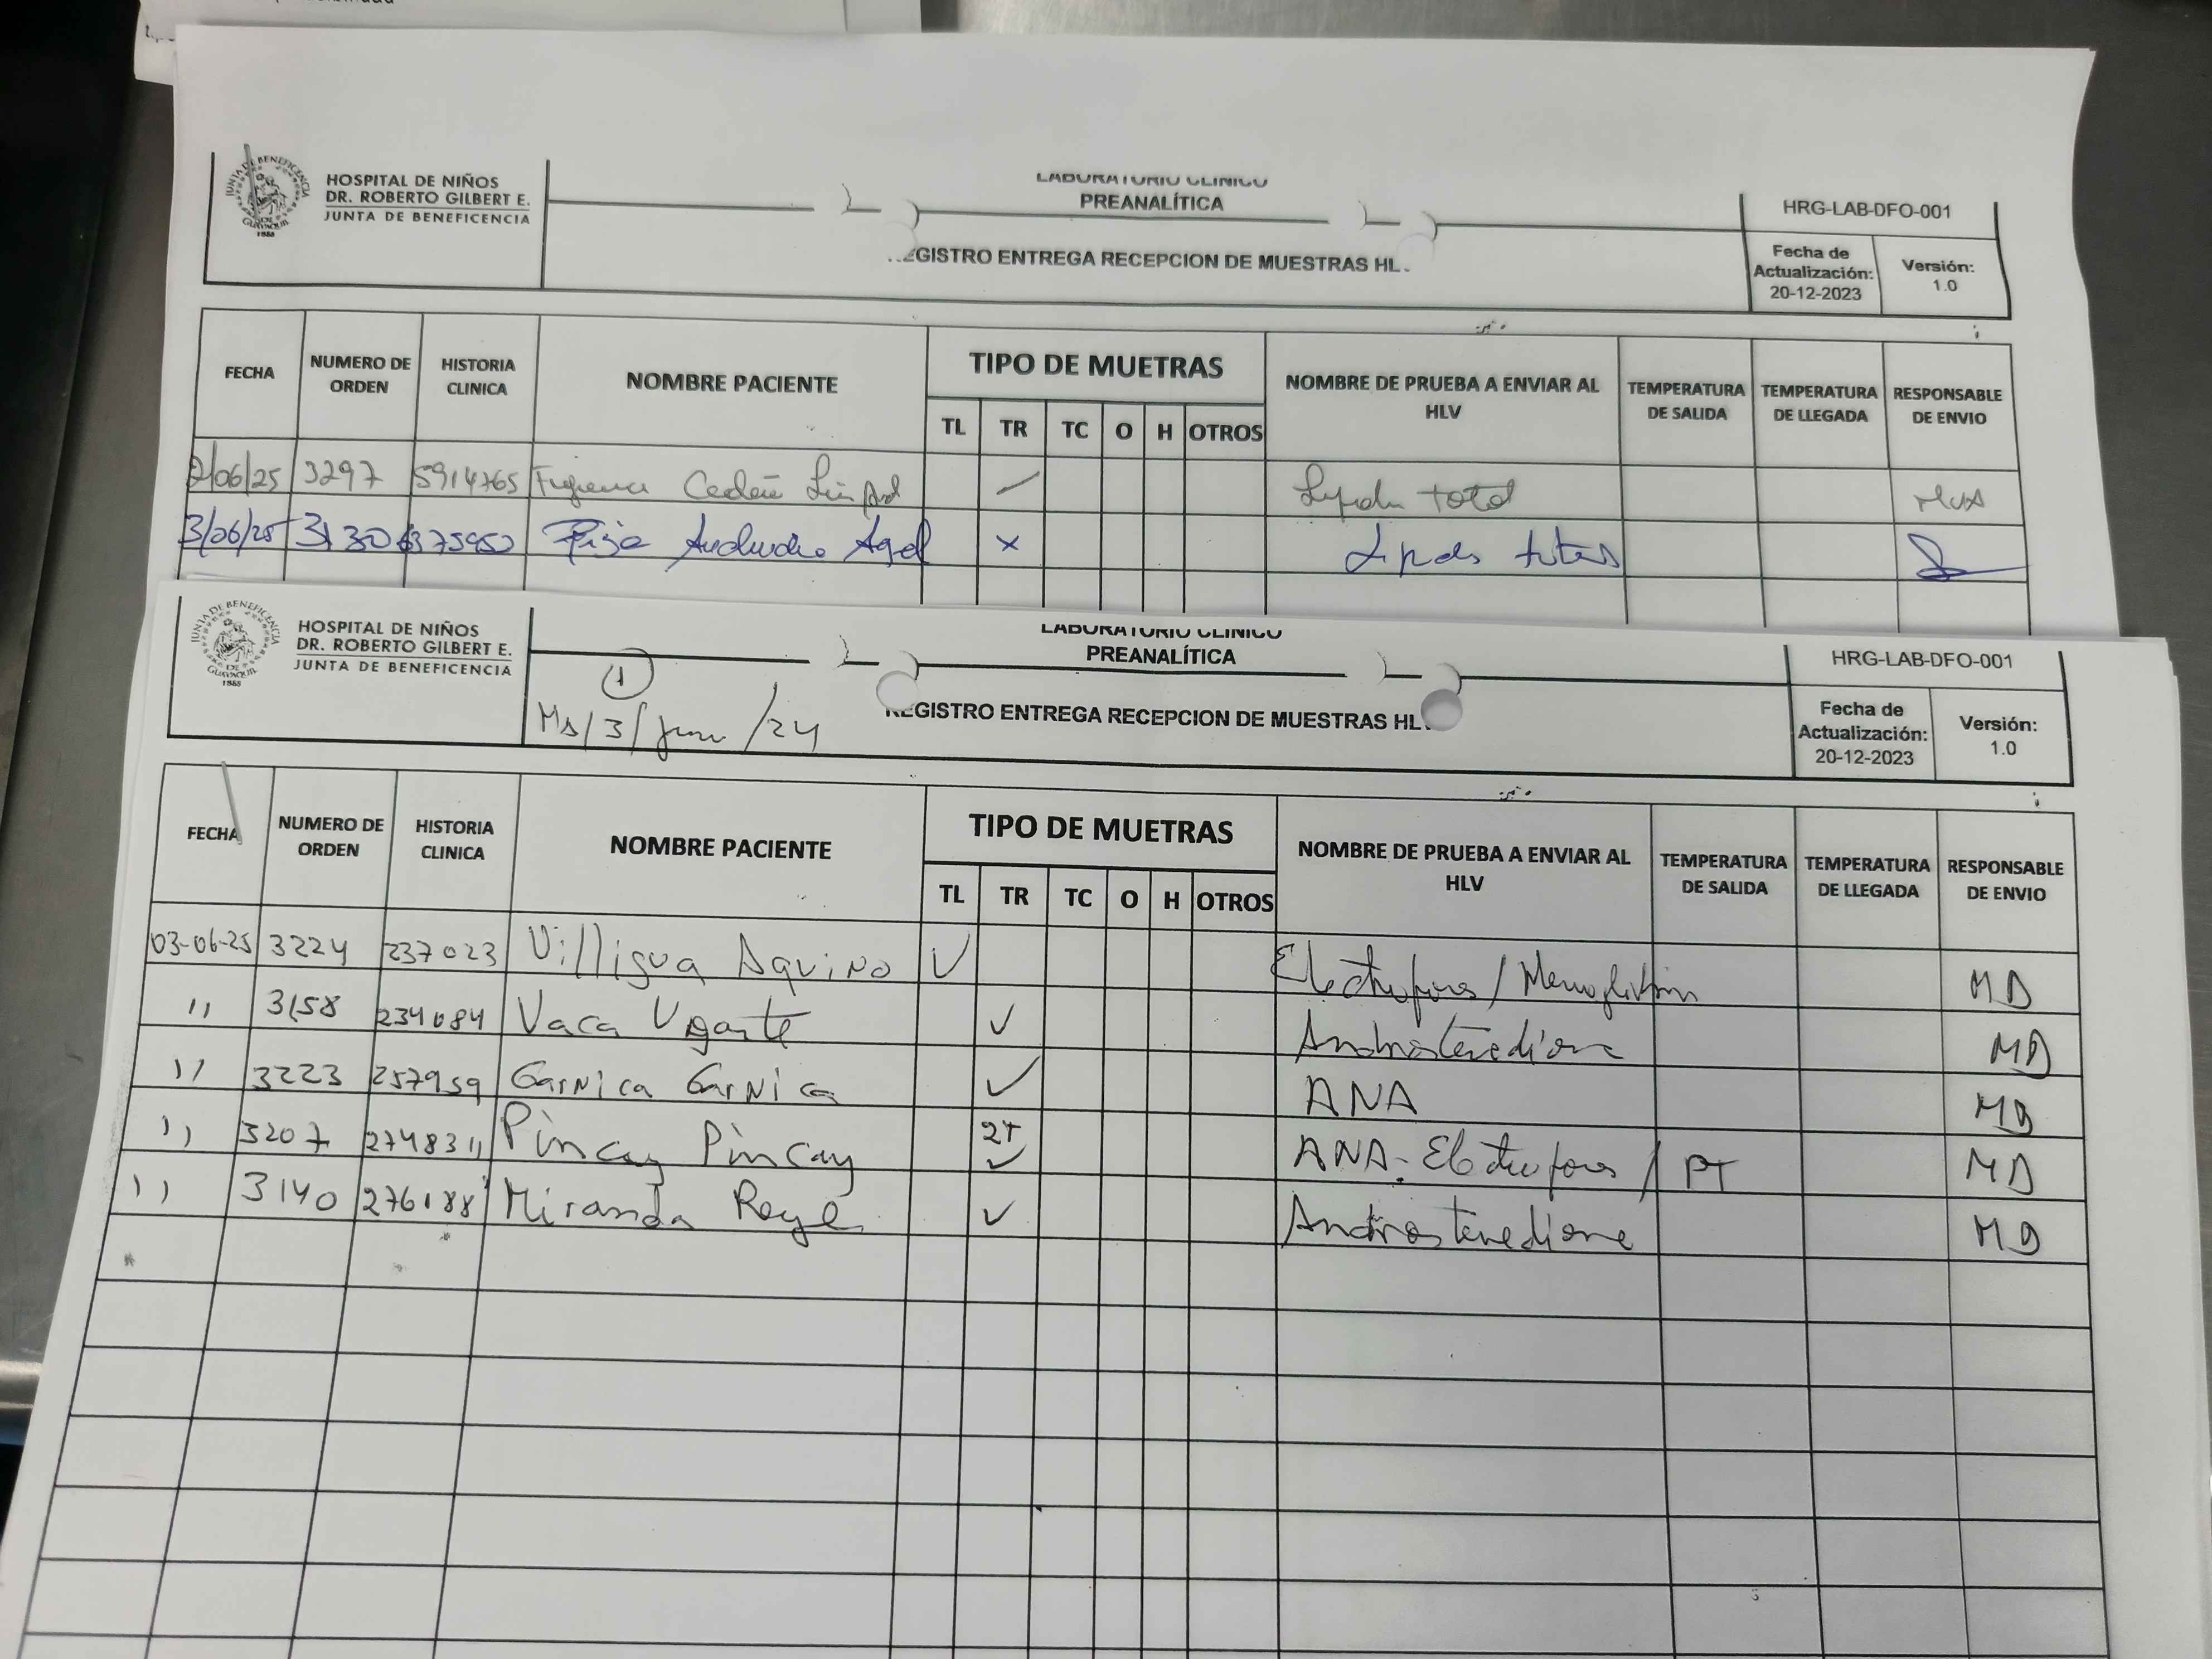 HOSPITAL DE NIÑOS
DR. ROBERTO GILBERT E.
JUNTA DE BENEFICENCIA
JUNTA DE BENEFICENCIA DE GUAYAQUIL 1888
LABORATORIO CLINICO
PREANALÍTICA
REGISTRO ENTREGA RECEPCION DE MUESTRAS HL
HRG-LAB-DFO-001
Fecha de Actualización: 20-12-2023
Versión: 1.0
FECHA NUMERO DE ORDEN HISTORIA CLINICA NOMBRE PACIENTE TIPO DE MUETRAS NOMBRE DE PRUEBA A ENVIAR AL HLV TEMPERATURA DE SALIDA TEMPERATURA DE LLEGADA RESPONSABLE DE ENVIO
TL TR TC O H OTROS
2/06/25 3297 5914765 total
3/06/25
HOSPITAL DE NIÑOS
DR. ROBERTO GILBERT E.
JUNTA DE BENEFICENCIA
JUNTA DE BENEFICENCIA DE GUAYAQUIL 1888
1
/3/ /24
LABORATORIO CLINICO
PREANALÍTICA
REGISTRO ENTREGA RECEPCION DE MUESTRAS HL
HRG-LAB-DFO-001
Fecha de Actualización: 20-12-2023
Versión: 1.0
FECHA NUMERO DE ORDEN HISTORIA CLINICA NOMBRE PACIENTE TIPO DE MUETRAS NOMBRE DE PRUEBA A ENVIAR AL HLV TEMPERATURA DE SALIDA TEMPERATURA DE LLEGADA RESPONSABLE DE ENVIO
TL TR TC O H OTROS
03-06-25 3224 237023 Villigua Aquino ✓ MD
'' 3158 234084 Vaca Ugarte ✓ Androstenediona MD
'' 3223 257959 Garnica Garnica ✓ ANA MD
'' 3207 Pincay Pincay 2T ✓ ANA- / PT MD
'' 3140 276188 Miranda ✓ Androstenediona MD